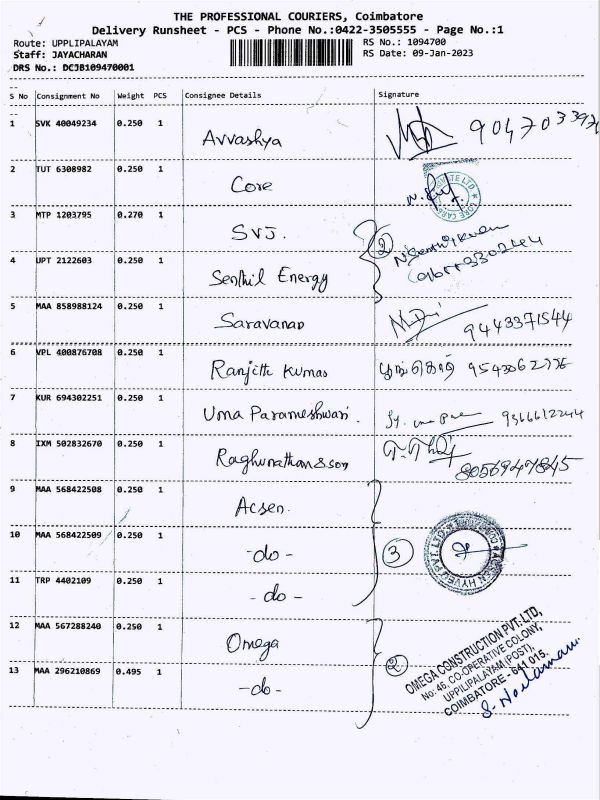 THE PROFESSIONAL COURIERS, Coimbatore
Delivery Runsheet - PCS - Phone No.:0422-3505555 - Page No.:1
Route: UPPLIPALAYAM RS No.: 1094700
Staff: JAYACHARAN RS Date: 09-Jan-2023
DRS No.: DCJB109470001
S No Consignment No Weight PCS Consignee Details Signature
1 SVK 40049234 0.250 1 Avvashya
2 TUT 6308982 0.250 1 Core
3 MTP 1203795 0.270 1 SVJ. 2
4 UPT 2122603 0.250 1 Senthil Energy
5 MAA 858988124 0.250 1 Saravanan 9443371544
6 VPL 400876708 0.250 1 Ranjith Kumar
7 KUR 694302251 0.250 1 Uma Parameshwari.
8 IXM 502832670 0.250 1 Raghunathan & son 8056947845
9 MAA 568422508 0.250 1 Acsen.
10 MAA 568422509 0.250 1 -do- 3
11 TRP 4402109 0.250 1 -do-
12 MAA 567288240 0.250 1 Omega
13 MAA 296210869 0.495 1 -do- 2
OMEGA CONSTRUCTION PVT. LTD,
No: 46, CO-OPERATIVE COLONY,
UPPILIPALAYAM (POST),
COIMBATORE - 641 015.